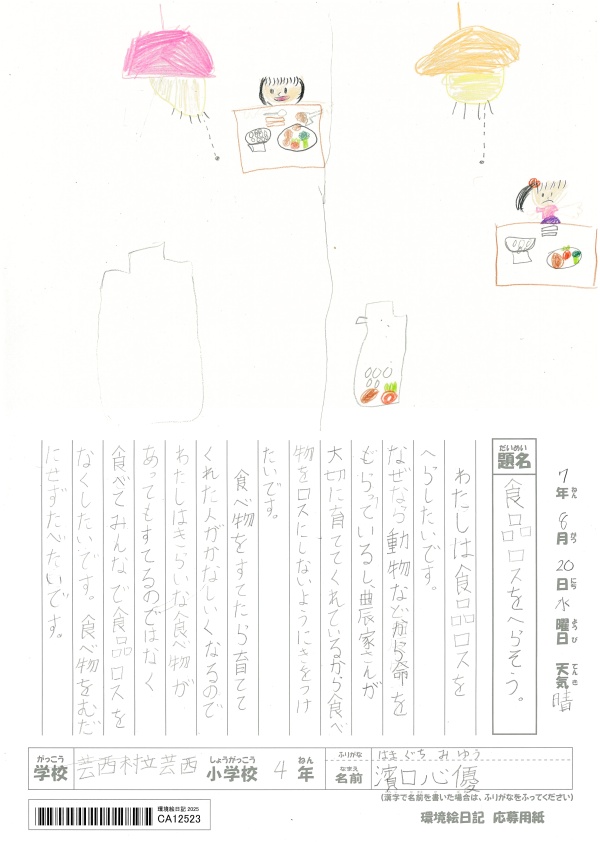 7年 8月 20日 水曜日 天気 晴
ねん がつ にち ようび てんき
だいめい
題名
食品ロスをへらそう。
わたしは食品ロスを
へらしたいです。
なぜなら動物などから命を
もらっているし、農家さんが
大切に育ててくれているから食べ
物をロスにしないようにきをつけ
たいです。
食べ物をすてたら育てて
くれた人がかなしくなるので
わたしはきらいな食べ物が
あってもすてるのではなく
食べてみんなで食品ロスを
なくしたいです。食べ物をむだ
にせずたべたいです。
がっこう
学校
芸西村立芸西
しょうがっこう
小学校
4
ねん
年
ふりがな
はまぐち みゆう
なまえ
名前
濵口心優
(漢字で名前を書いた場合は、ふりがなをふってください)
環境絵日記 2025
CA12523
環境絵日記 応募用紙